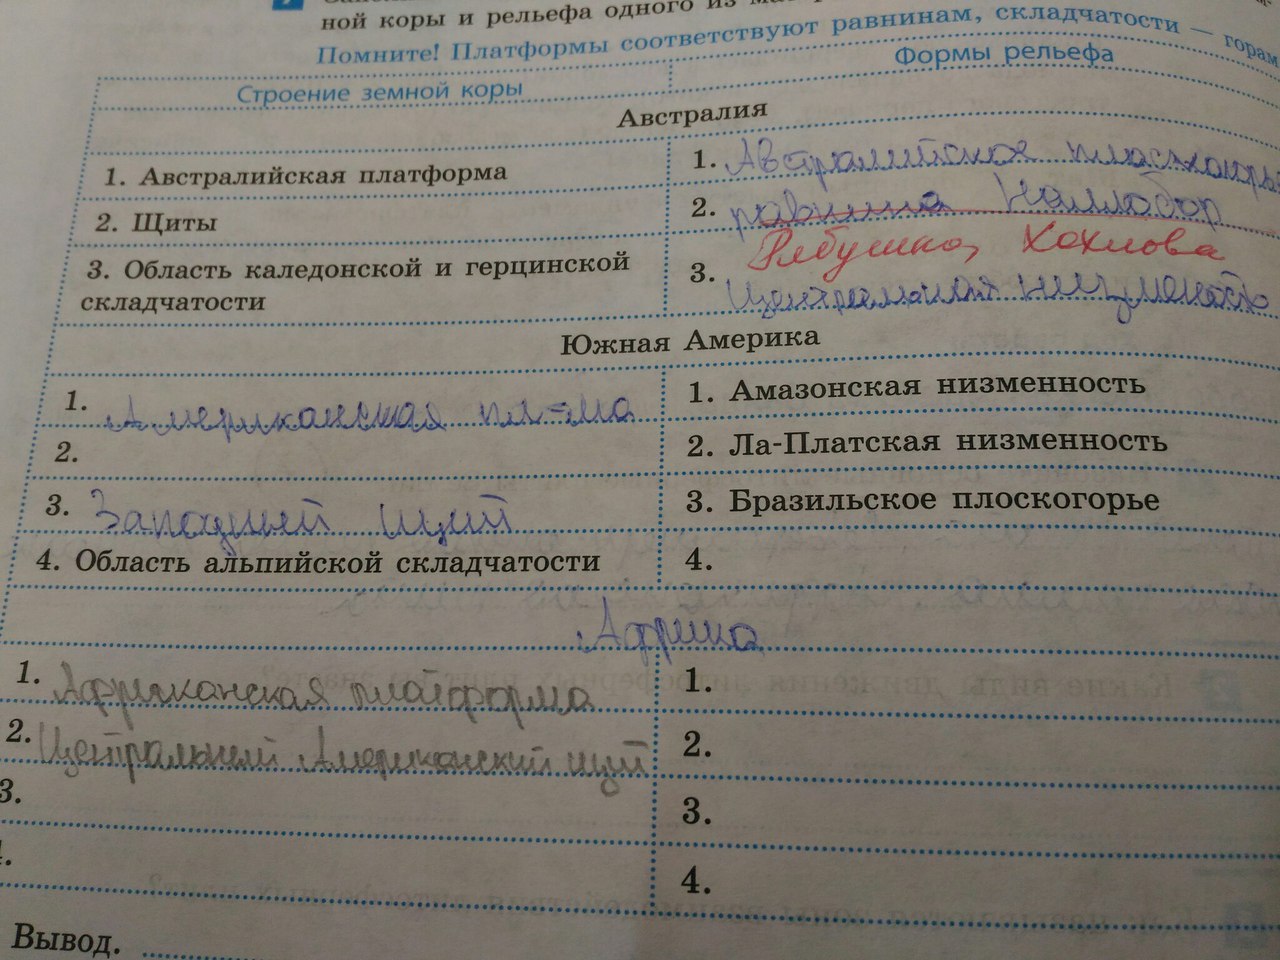 ной коры и рельефа одного из
Помните! Платформы соответствуют равнинам, складчатости — горам
Строение земной коры
Формы рельефа
Австралия
1. Австралийская платформа
1. Австралийское плоскогорье
2. Щиты
2. равнина Наллабор
Рябушко, Хохлова
3. Область каледонской и герцинской складчатости
3. Центральная низменность
Южная Америка
1. Американская пл-ма
1. Амазонская низменность
2.
2. Ла-Платская низменность
3. Западный щит
3. Бразильское плоскогорье
4. Область альпийской складчатости
4.
Африка
1. Африканская платформа
1.
2. Центральный Американский щит
2.
3.
3.
4.
Вывод.